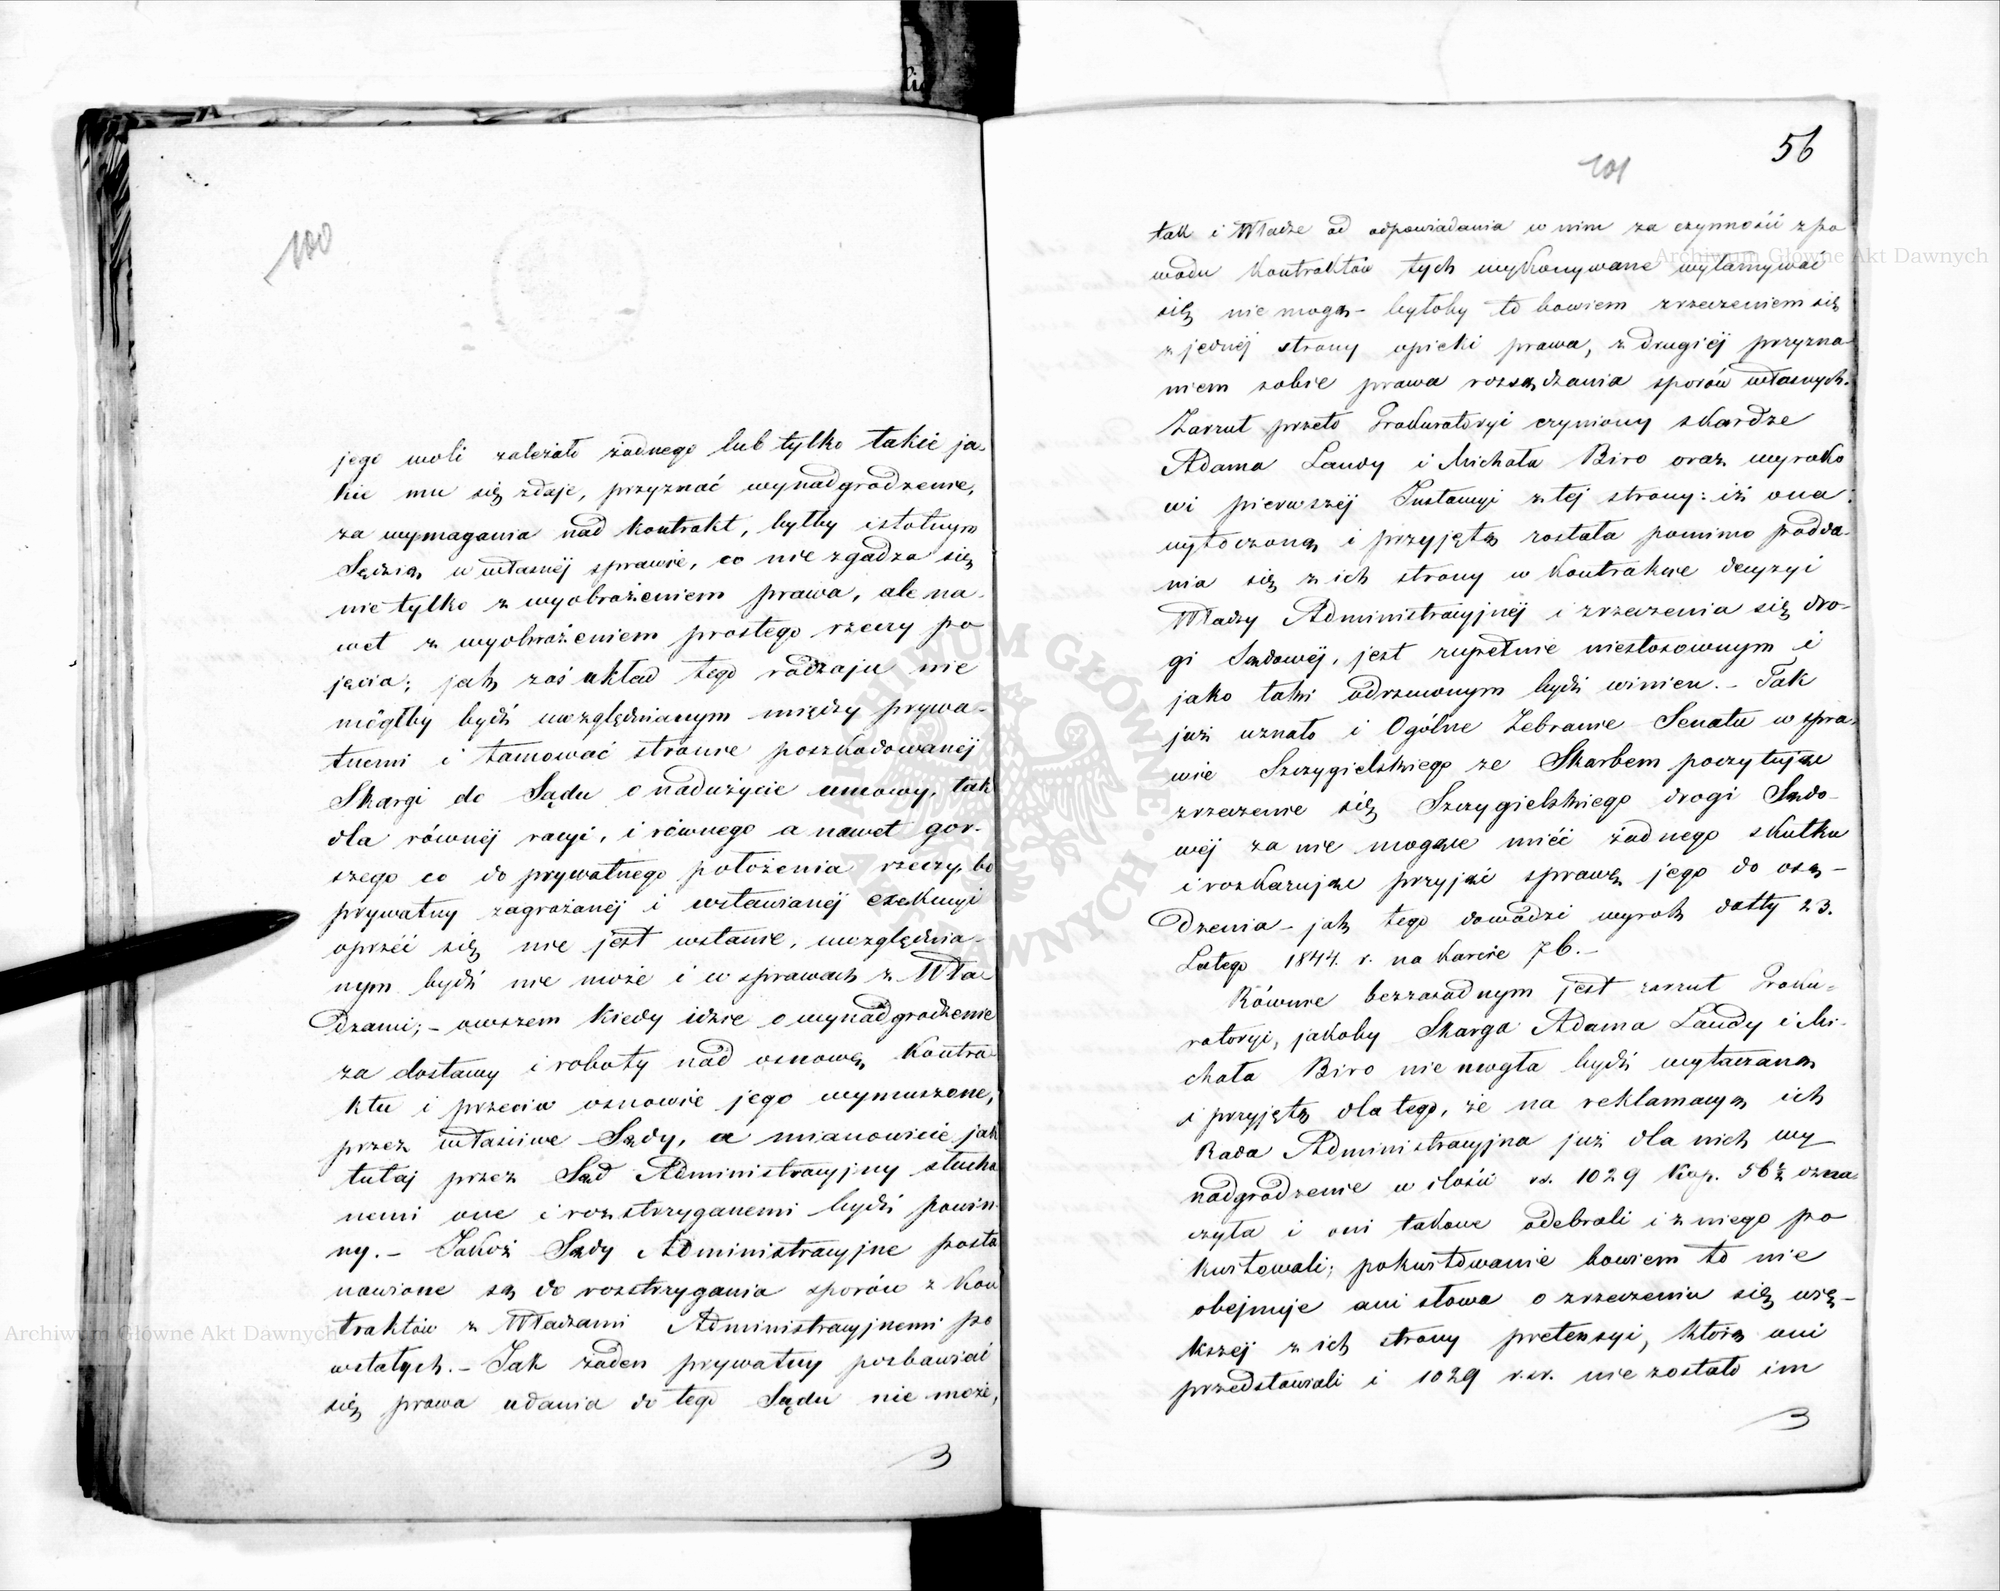 100
jego woli zależało żadnego lub tylko takie ja-
kie mu się zdaje, przyznać wynadgrodzenie,
za wymagania nad kontrakt, byłby istotnym
Sędzią w własnéj sprawie, co nie zgadza się
nie tylko z wyobrażeniem prawa, ale na-
wet z wyobrażeniem prostego rzeczy po
jęcia; jak zaś układ tego rodzaju nie
mógłby bydź uwzględnianym między prywa-
tnemi i tamować stronie poszkodowanéj
Skargi do Sądu o nadużycie umowy, tak
dla równéj racyi, i równego a nawet gor-
szego co do prywatnego położenia rzeczy, bo
prywatny zagrożonéj i wstawianéj exekucyi
oprzéć się nie jest wstanie, uwzględnia-
nym bydź nie może i w sprawach z Wła-
dzami; - owszem kiedy idzie o wynadgrodzenie
za dostawy i roboty nad osnowę Kontra
ktu i przeciw osnowie jego wymuszone,
przez właściwe Sądy, a mianowicie jak
tutaj przez Sąd Administracyjny słucha
nemi one i rozstrzyganemi bydź powin-
ny. - Jakoż Sądy Administracyjne posta
nowione są do rozstrzygania sporów z Kon
traktów z Władzami Administracyjnemi po
wstałych. - Jak żaden prywatny pozbawiać
się prawa udania do tego Sądu nie może,
3
56
101
tak i Władze od odpowiadania w nim za czynności z po
wodu Kontraktów tych wykonywane wyłamywać
się nie mogą - byłoby to bowiem zrzeczeniem się
z jednéj strony opieki prawa, z drugiéj przyzna
niem sobie prawa rozsądzania sporów własnych.
Zarzut przeto Prokuratoryi czyniony skardze
Adama Laudy i Michała Biro oraz wyroko
wi pierwszéj Instancyi z téj strony: iż ona
wytoczoną i przyjętą została pomimo podda-
nia się z ich strony w Kontrakcie decyzyi
Władzy Administracyjnéj i zrzeczenia się dro-
gi Sądowéj, jest zupełnie niestosownym i
jako taki odrzuconym bydź winien. - Tak
już uznało i Ogólne Zebranie Senatu w spra-
wie Szczygielskiego ze Skarbem poczytując
zrzeczenie się Szczygielskiego drogi Sądo-
wéj za nie mogące miéć żadnego skutku
i rozkazując przyjąć sprawę jego do osą-
dzenia - jak tego dowodzi wyrok datty 23.
Lutego 1844. r. na karcie 76. -
Równie bezzasadnym jest zarzut Proku-
ratoryi, jakoby Skarga Adama Laudy i Mi-
chała Biro nie mogła bydź wytaczaną
i przyjętą dla tego, że na reklamacyą ich
Rada Administracyjna już dla nich wy
nadgrodzenie w ilości rs. 1029 kop. 56½ ozna-
czyła i oni takowe odebrali i z niego po
kwitowali; pokwitowanie bowiem to nie
obejmuje ani słowa o zrzeczeniu się wię-
kszéj z ich strony pretensyi, którą oni
przedstawiali i 1029 r.sr. nie zostało im
3
Archiwum Główne Akt Dawnych
Archiwum Główne Akt Dawnych
ARCHIWUM GŁÓWNE AKT DAWNYCH